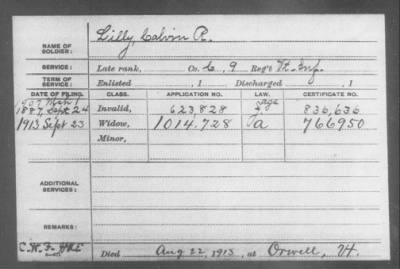 NAME OF SOLDIER: Lilly, Calvin R.
SERVICE: Late rank, Co. C, 9 Reg't Vt. Inf.
TERM OF SERVICE: Enlisted , 1 Discharged , 1
DATE OF FILING. CLASS. APPLICATION NO. LAW. CERTIFICATE NO.
1907 Mch 1 age
1887, Sept 24 Invalid, 623.828 836,636
1913 Sept 23 Widow, 1014.728 Pa 766950
Minor,
ADDITIONAL SERVICES:
REMARKS:
Died Aug 22, 1913, at Orwell, Vt.